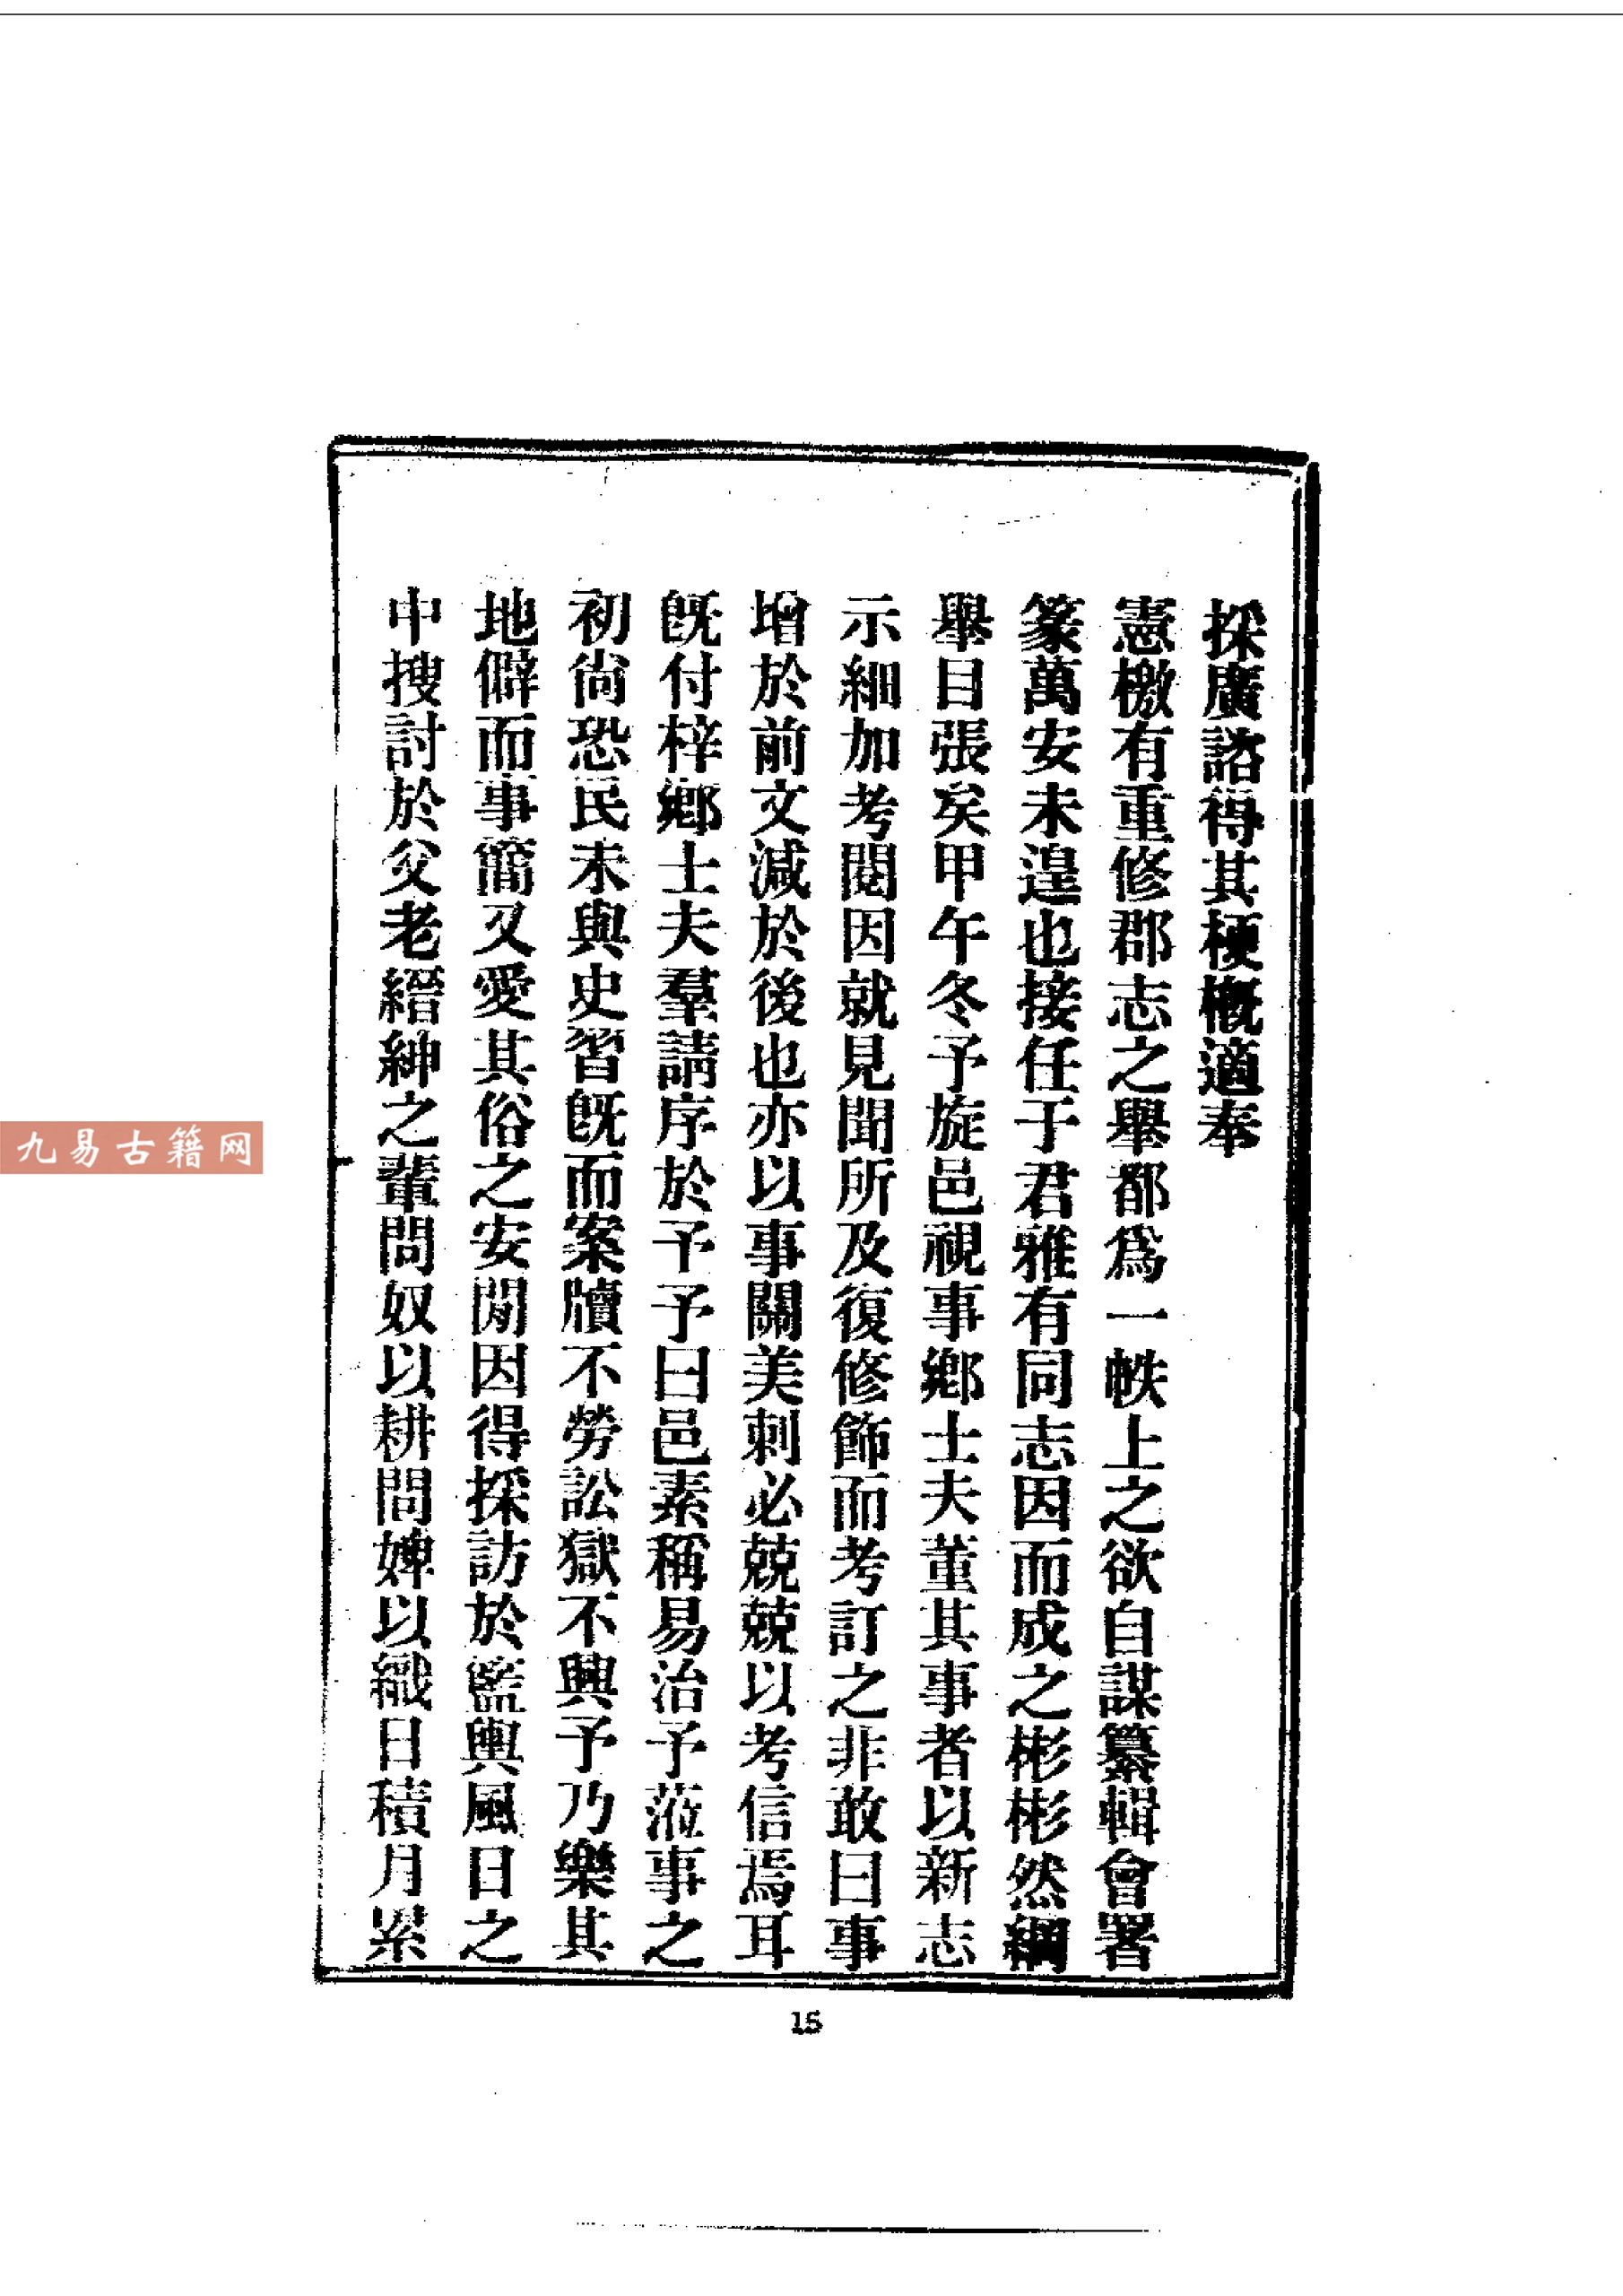 採廣諮得其梗槪適奉
憲檄有重修郡志之舉都爲一帙上之欲自謀纂輯會署
篆萬安未遑也接任于君雅有同志因而成之彬彬然綱
舉目張矣甲午冬予旋邑視事鄉士夫董其事者以新志
示細加考閱因就見聞所及復修飾而考訂之非敢曰事
增於前文減於後也亦以事關美刺必兢兢以考信焉耳
旣付梓鄉士夫羣請序於予予曰邑素稱易治予蒞事之
初尙恐民未與史習旣而案牘不勞訟獄不興予乃樂其
地僻而事簡又愛其俗之安閒因得採訪於籃輿風日之
中搜討於父老縉紳之輩問奴以耕問婢以織日積月累
15
九易古籍网